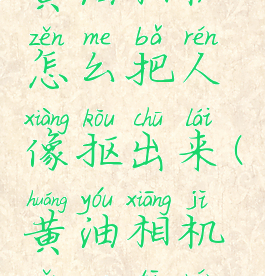 zěn me bǎ rén
怎么把人
xiàng kōu chū lái
像抠出来(
huáng yóu xiāng jī
黄油相机